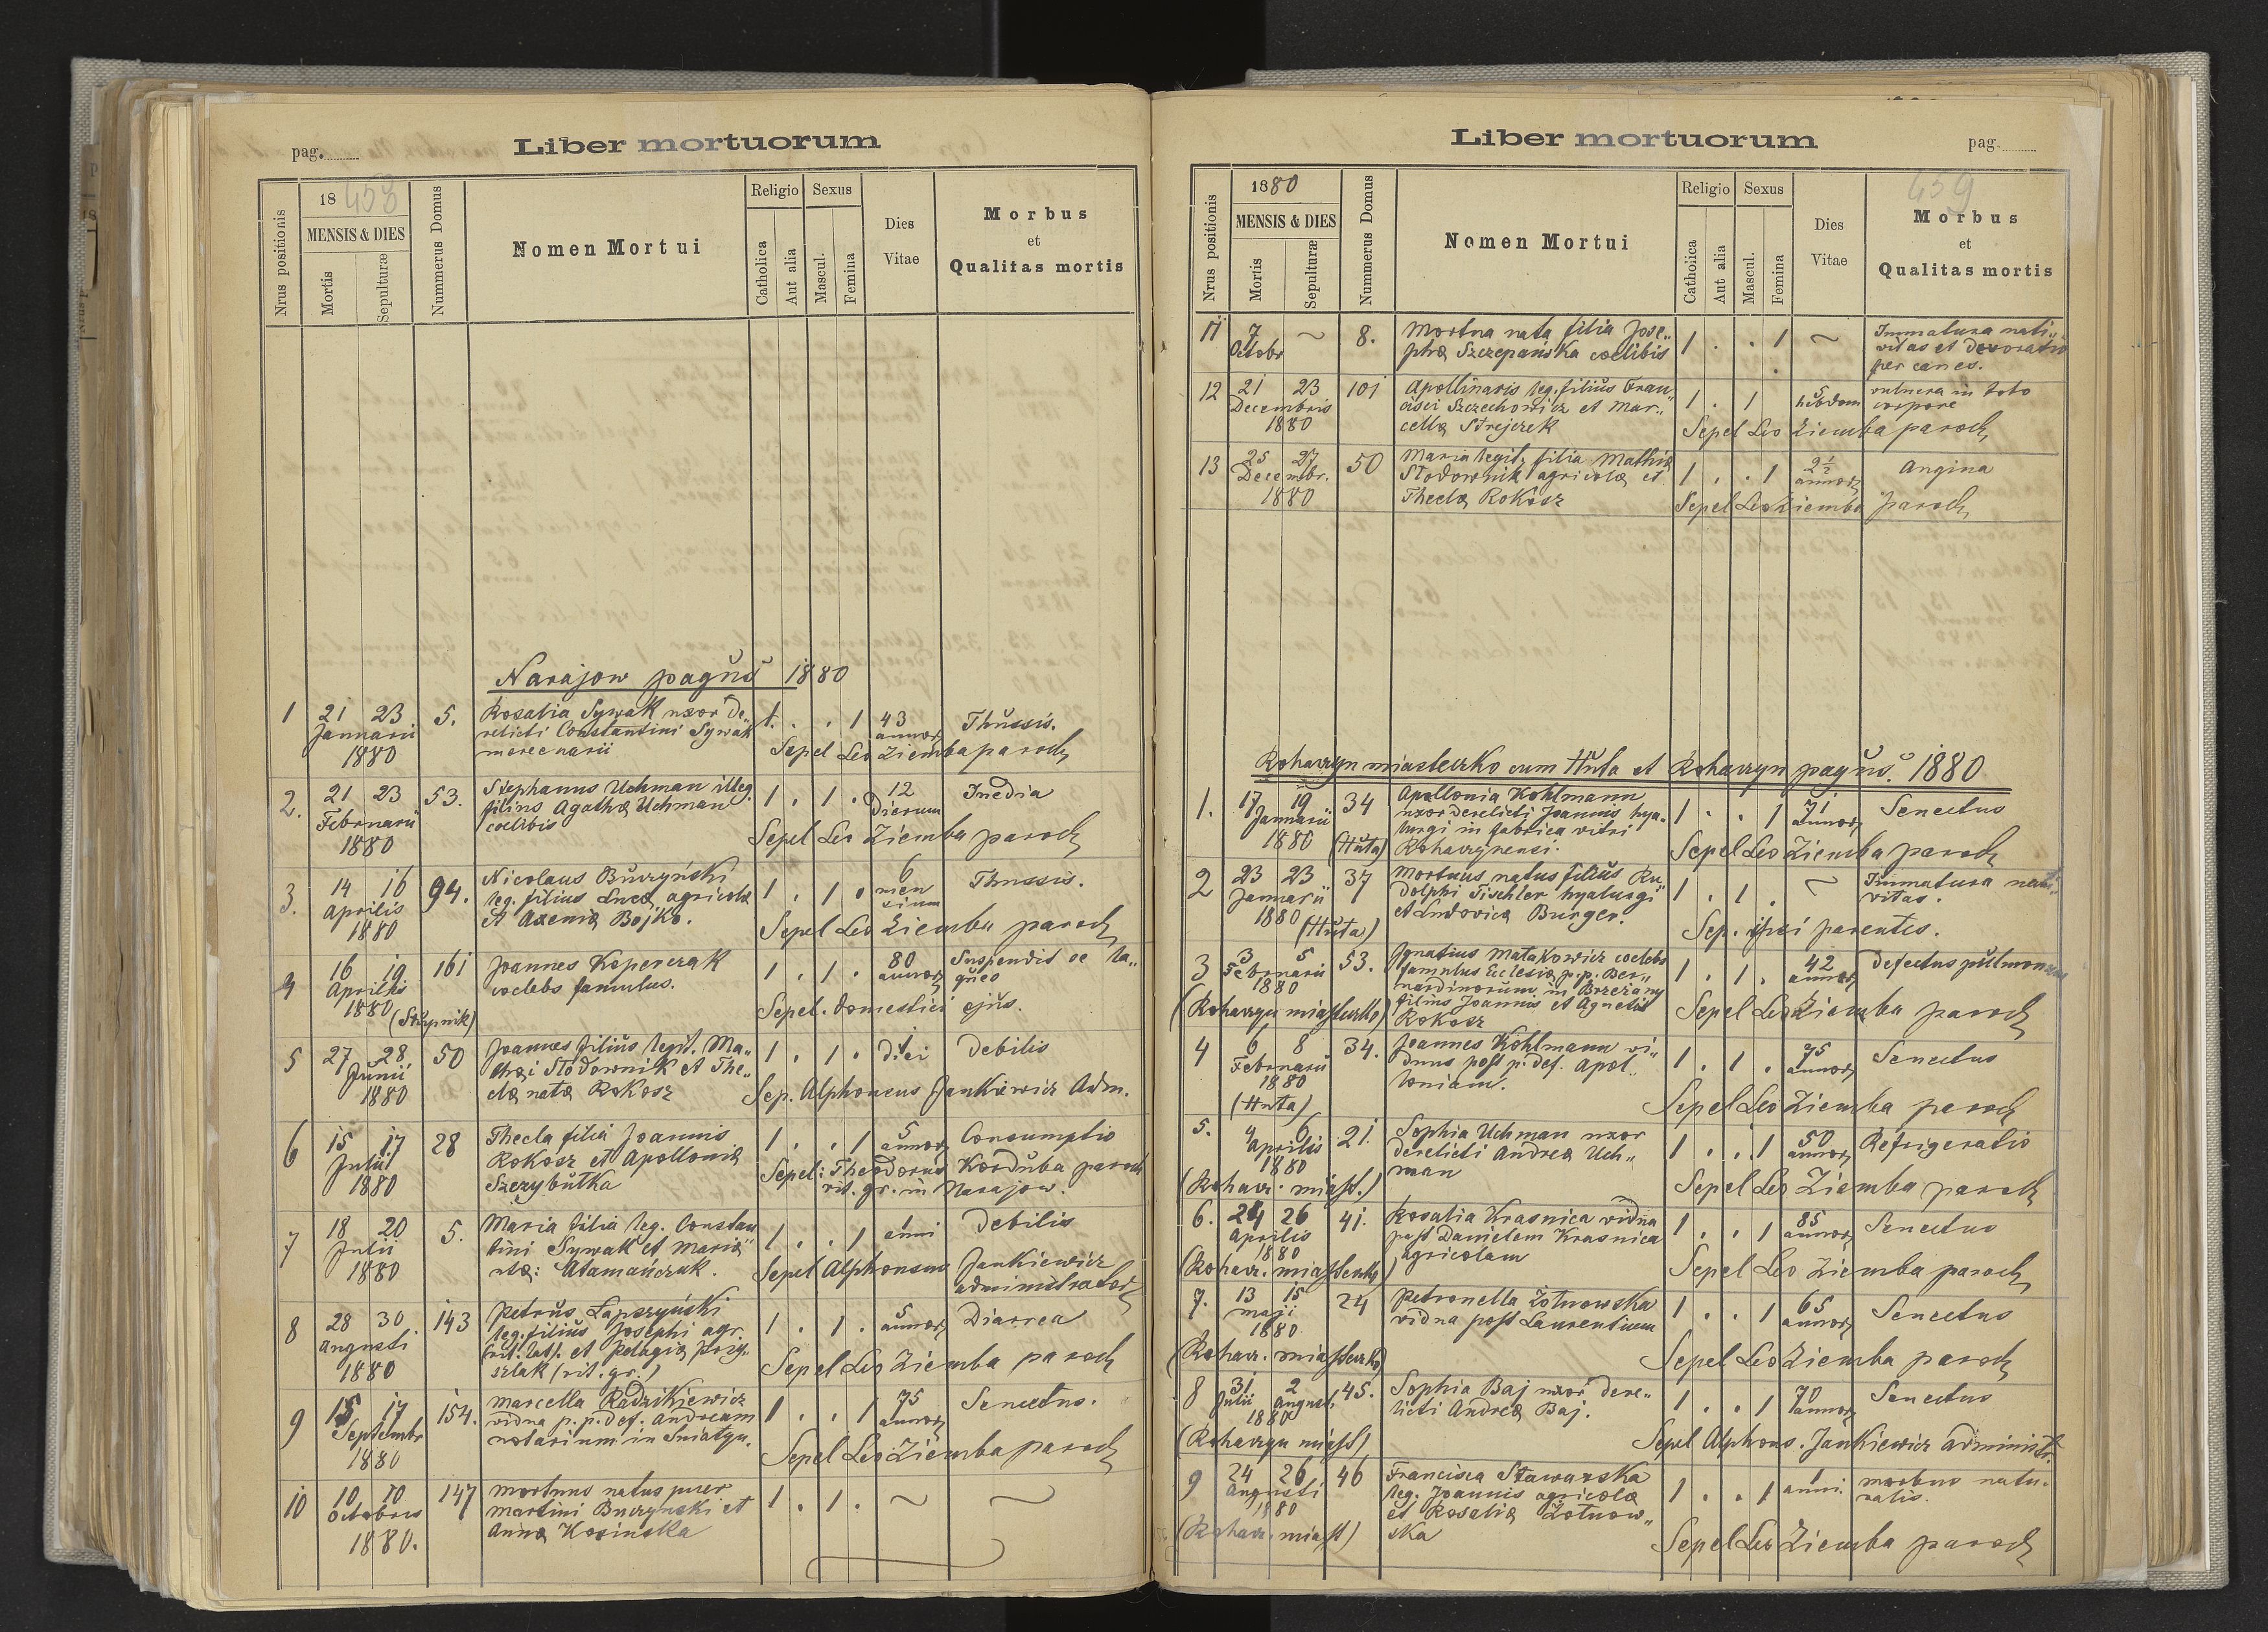 pag.
Liber mortuorum
Nrus positionis
18 453
MENSIS & DIES
Mortis
Sepulturæ
Nummerus Domus
Nomen Mortui
Religio
Catholica
Aut alia
Sexus
Mascul.
Femina
Dies
Vitae
Morbus
et
Qualitas mortis
Narajow pagus 1880
1 21 23 5. Rosalia Sywak uxor de„ 1 . . 1 43 Thussis.
Januarii relicti Constantini Sywak annor
1880 mercenarii Sepel Leo Ziemba paroch
2. 21 23 53. Stephanus Uchman illeg. 1 . 1 . 12 Inedia
Februarii filius Agathæ Uchman Dierum
1880 coelibis Sepel Leo Ziemba paroch
3. 14 16 94. Nicolaus Burzyński 1 . 1 . 6 Thussis.
Aprilis leg. filius Lucæ agricolæ mensium
1880 et Axenia Bojko. Sepel Leo Ziemba paroch
4 16 19 161 Joannes Koperczak 1 . 1 . 80 Suspendit se la„
Aprilis coelebs famulus. annor queo
1880 Sepel. domestici ejus.
5 27 28 50 Joannes filius legit. Ma„ 1 . 1 . 1 Debilis
Junii Stodownik et The„ diei
1880 clæ nata Rokosz Sep. Alphonsus Jankiewicz Adm.
6 15 17 28 Thecla filia Joannis 1 . . 1 5 Consumptio
Julii Rokosz et Apollonia annor
1880 Szczybutka Sepel: Theodorus Korduba paroch
rit. gr. in Narajow.
7 18 20 5. Maria filia leg. Constan 1 . . 1 1 Debilis
Julii tini Sywak et Maria anni
1880 Atamańczuk. Sepel Alphonsus Jankiewicz
administrator
8 28 30 143 Petrus Łapszyński 1 . 1 . 5 Diarrea
Augusti leg. filius Josephi agr. annor
(rit. lat). et Pelagia Przy„
1880 szlak (rit. gr.) Sepel Leo Ziemba paroch
9 15 17 154. Marcella Radzikiewicz 1 . . 1 75 Senectus.
Septembr vidua p. p. def. Andream annor
1880 notarium in Sniatyn. Sepel Leo Ziemba paroch
10 10 10 147 mortuus natus puer 1 . 1 . ~ ~
Octobris Martini Burzynski et
1880. Anna Kosinska
Liber mortuorum
pag.
Nrus positionis
1880
MENSIS & DIES
Mortis
Sepulturæ
Nummerus Domus
Nomen Mortui
Religio
Catholica
Aut alia
Sexus
Mascul.
Femina
Dies
Vitae
459
Morbus
et
Qualitas mortis
11 7 ~ 8. Mortua nata filia Jose„ 1 . . 1 ~ Immatura nati„
Octobr phæ Szczepańska coelibis vitas et devoratio
per canes.
12 21 23 101 Apollinaris leg. filius Fran„ 1 . 1 5 vulnera in toto
Decembris cisci Szczechowicz et Mar„ hebdom corpore
1880 cella Strejczek Sepel Leo Ziemba paroch
13 25 27 50 Maria legit. filia Mathiæ 1 . . 1 2½ Angina
Decembr. Stodownik agricolæ et annor
1880 Theclæ Rokosz Sepel Leo Ziemba paroch
Rohaczyn miasteczko cum Huta et Rohaczyn pagus. 1880
1. 17 19 34 Apollonia Kohlmann 1 . . 1 71 Senectus
Januarii uxor derelicti Joannis hya„ annor
1880 (Huta) lurgi in fabrica vitri
Rohaczynensi. Sepel Leo Ziemba paroch
2 23 23 37 Mortuus natus filius Ru„ 1 . 1 . ~ Immatura nati„
Januarii dolphi Tischler hyalurgi vitas.
1880 et Ludovica Burger.
(Huta) Sep. ipsi parentes.
3 3 5 53. Ignatius Matakowicz coelebs 1 . 1 . 42 Defectus pulmonum
Februarii famulus Ecclesiæ p.p. Ber„ annor
1880 nardinorum in Brzeżany
(Rohaczyn miasteczko) filius Joannis et Agnetis
Rokosz Sepel Leo Ziemba paroch
4 6 8 34. Joannes Kohlmann vi„ 1 . 1 . 75 Senectus
Februarii duus post p. def. Apol„ annor
1880 loniam.
(Huta) Sepel Leo Ziemba paroch
5. 4 6 21. Sophia Uchman uxor 1 . . 1 50 Refrigeratio
Aprilis derelicti Andreæ Uch„ annor
1880 man
(Rohacz. miast.) Sepel Leo Ziemba paroch
6. 24 26 41. Rosalia Krasnica vidua 1 . . 1 85 Senectus
Aprilis post Danielem Krasnica annor
1880 agricolam
(Rohacz. miasteczk) Sepel Leo Ziemba paroch
7. 13 15 24 Petronella Żołnowska 1 . . 1 65 Senectus
Maji vidua post Laurentium annor
1880
(Rohacz. miasteczko) Sepel Leo Ziemba paroch
8 31 2 45. Sophia Baj uxor dere„ 1 . . 1 70 Senectus
Julii August. licti Andreæ Baj. annor
1880
(Rohaczyn miast) Sepel Alphons. Jankiewicz administr.
9 24 26 46 Francisca Stawarska 1 . . 1 1 morbus natu„
Augusti leg. Joannis agricolæ anni ralis.
1880 et Rosalia Żołnow„
(Rohacz. miast) ska Sepel Leo Ziemba paroch